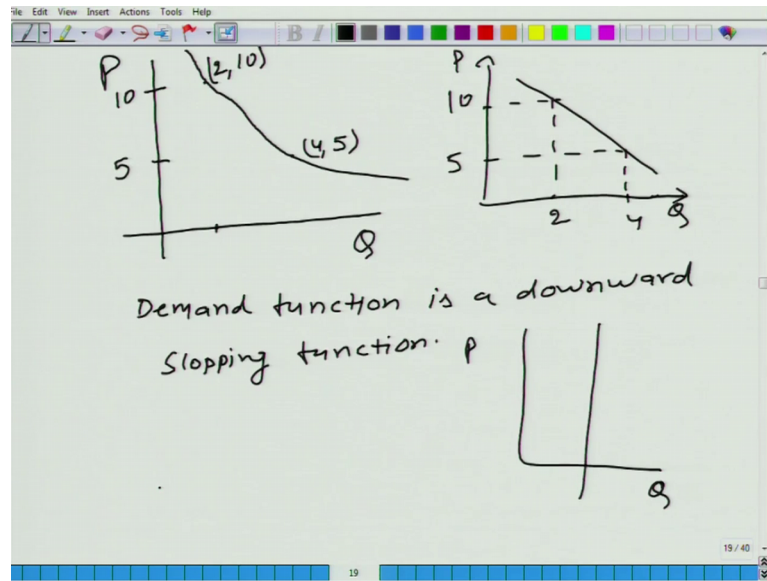 ile Edit View Insert Actions Tools Help
B I
P
(2,10)
10
(4,5)
5
Q
P
10
5
2 4 Q
Demand function is a downward
Slopping function.
P
Q
19/40
19